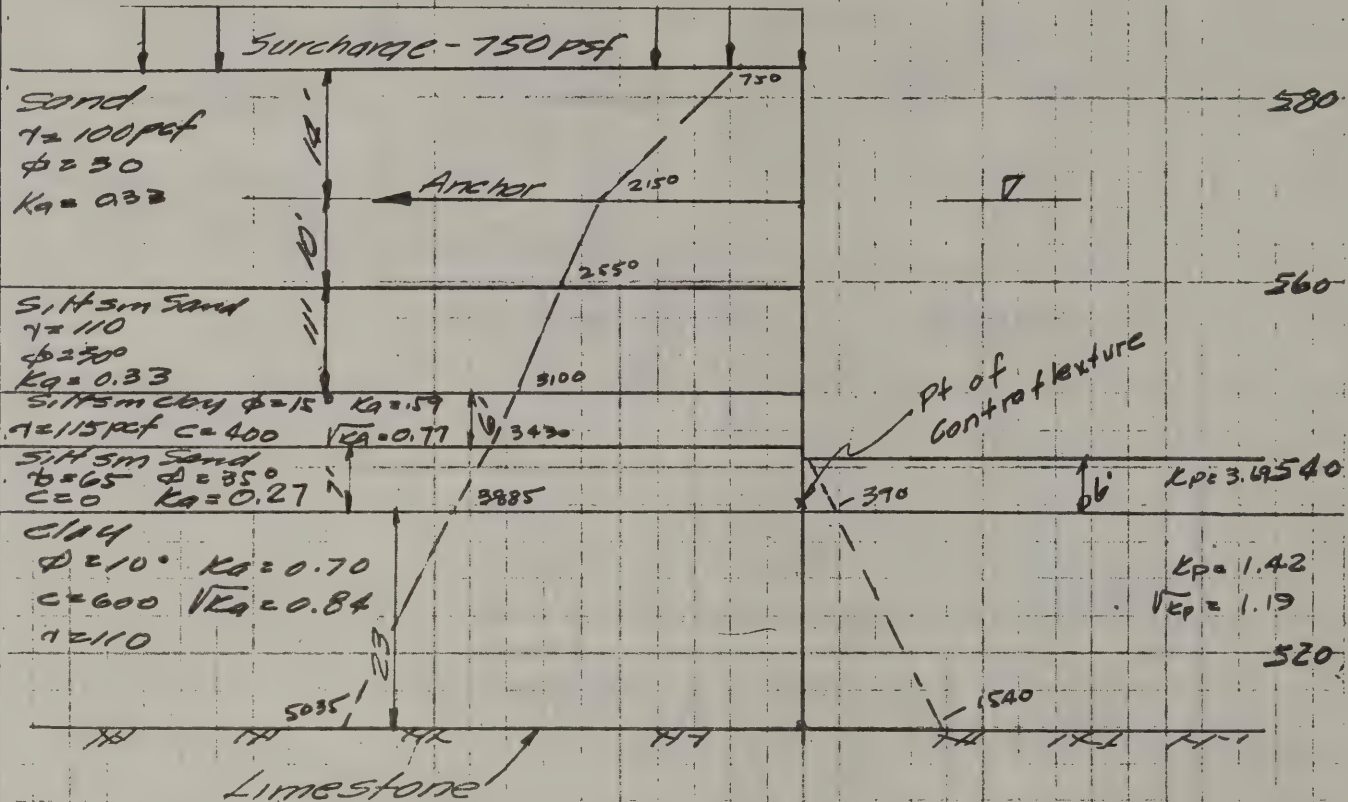 Surcharge - 750 psf
750
Sand
γ = 100 pcf
φ = 30
Ka = 0.33
14'
580
Anchor
2150
10'
2550
560
Silt sm Sand
γ = 110
φ = 30°
Ka = 0.33
11'
3100
Pt of
Contraflexture
Silt sm clay φ = 15 Ka = .59
γ = 115 pcf c = 400 √Ka = 0.77
6'
3430
Silt sm Sand
b = 65 φ = 35°
c = 0 Ka = 0.27
7'
3885
390
6'
Kp = 3.69
540
Clay
φ = 10° Ka = 0.70
c = 600 √Ka = 0.84
γ = 110
23
Kp = 1.42
√Kp = 1.19
520
5035
1540
Limestone